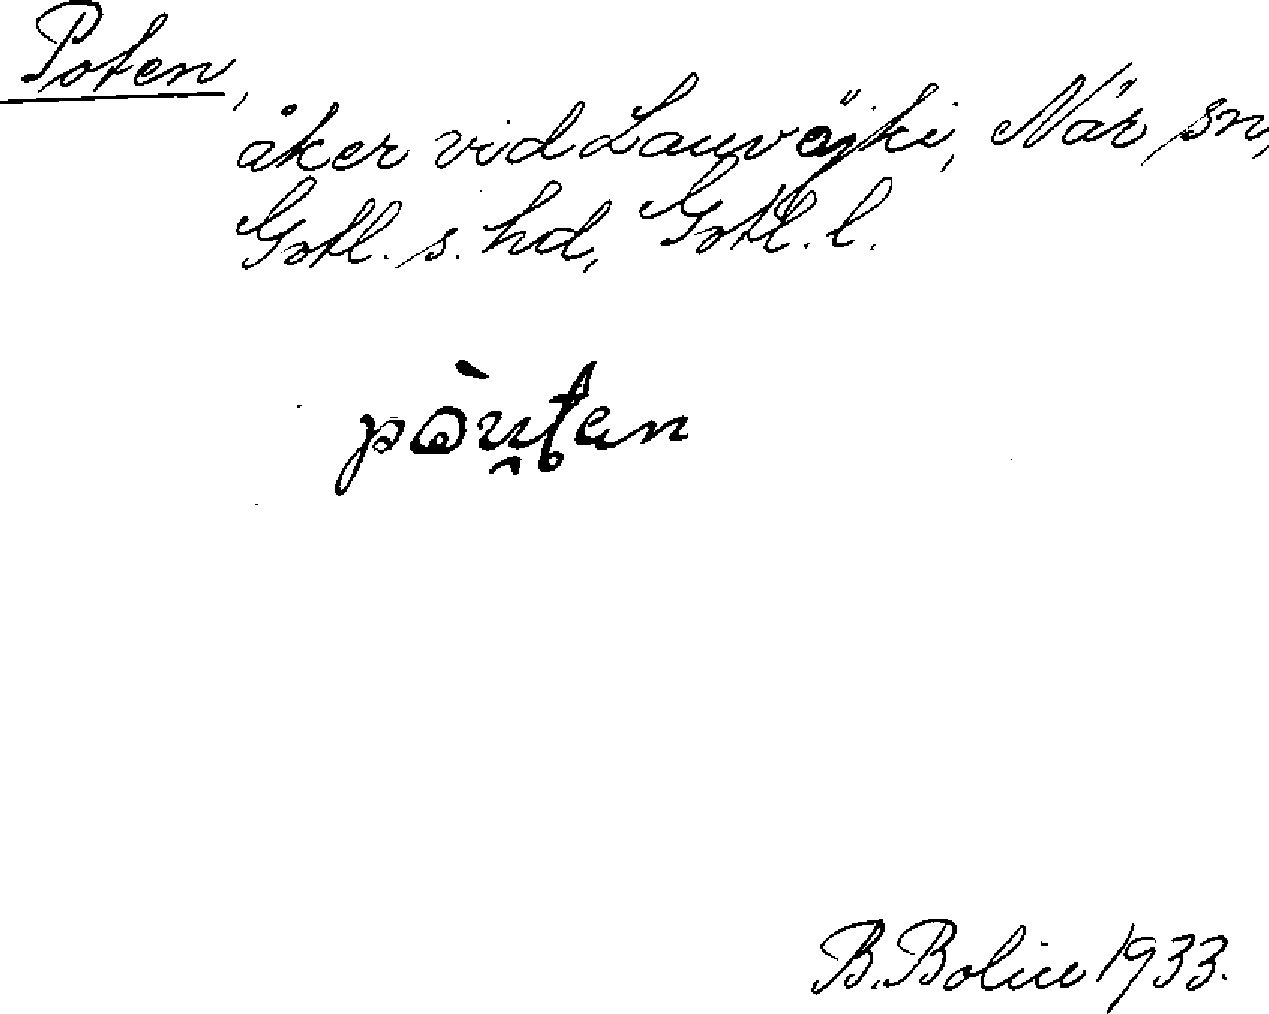 Poten,
åker vid Lauväjki, När sn,
Gotl. s. hd, Gotl. l.
B. Bolin 1933.